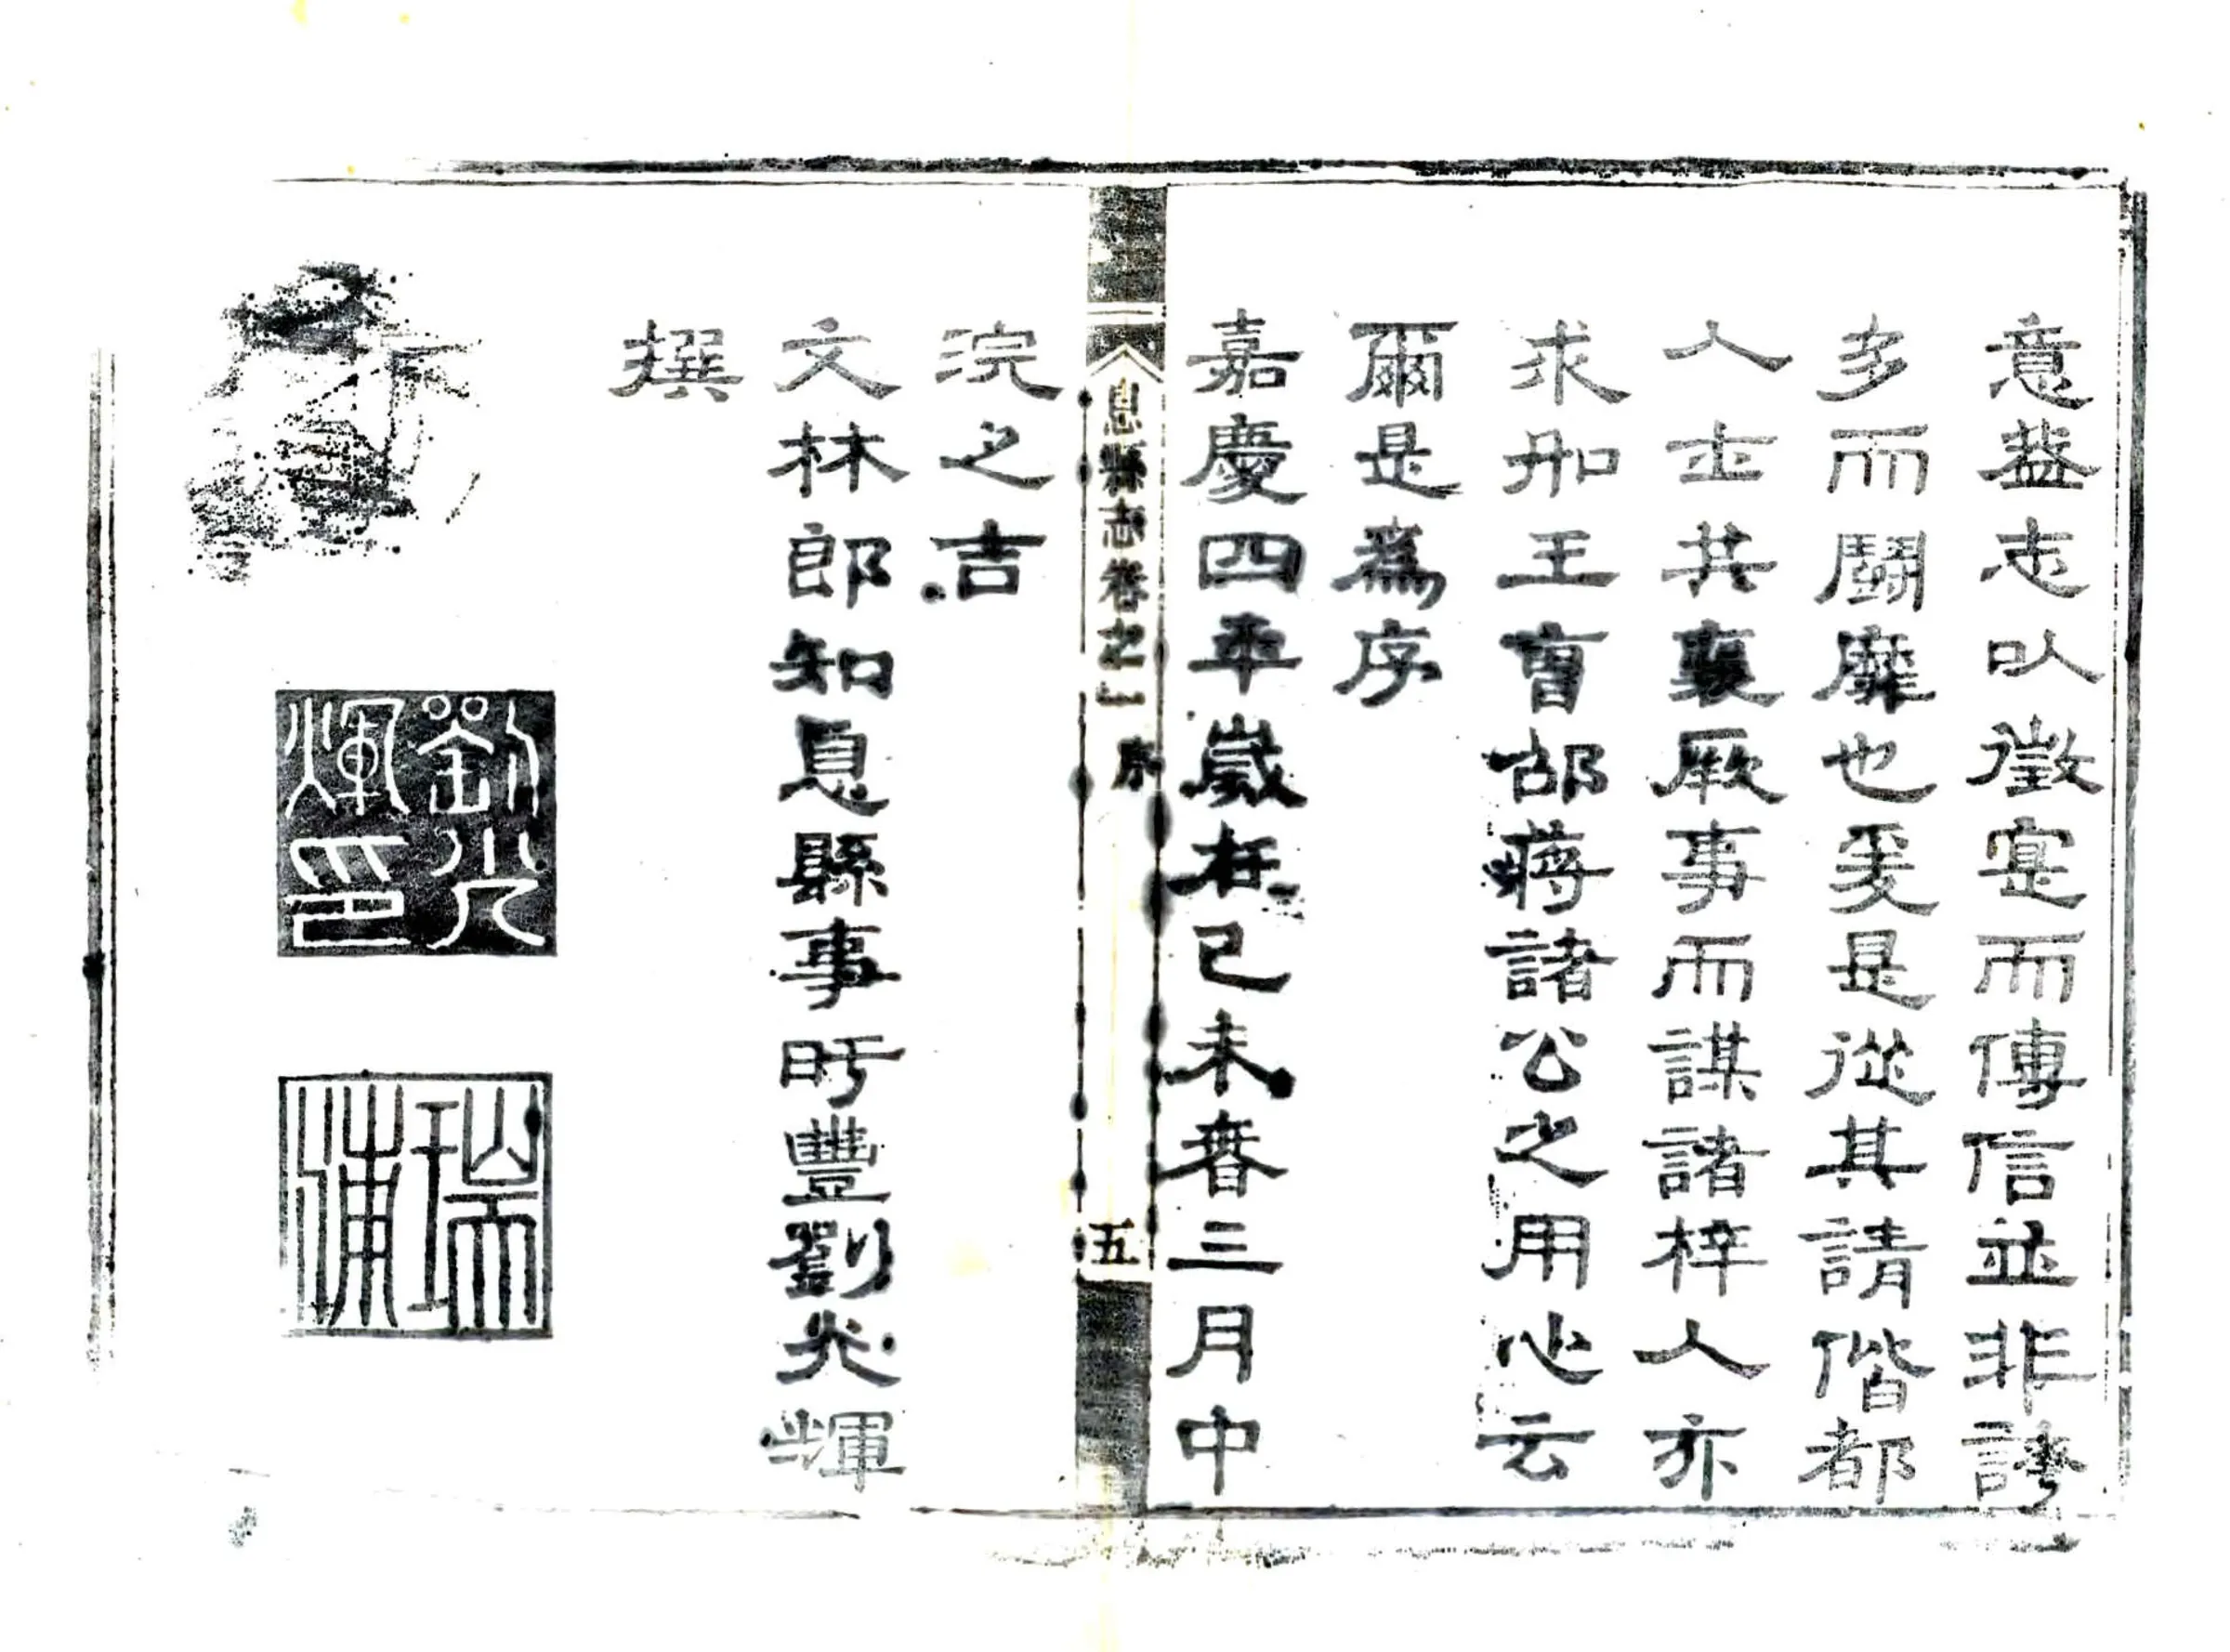 意葢志以徵寔而傳信並非誇
多而鬭靡也爰是從其請偕都
人士共襄厥事而謀諸梓人亦
求王曹蔣諸公之用心云
爾是爲序
嘉慶四年歲在己未春三月中
息縣志卷之一 序 五
浣之吉
文林郎知息縣事盱豐劉光輝
撰
劉光煇印
瑞浦